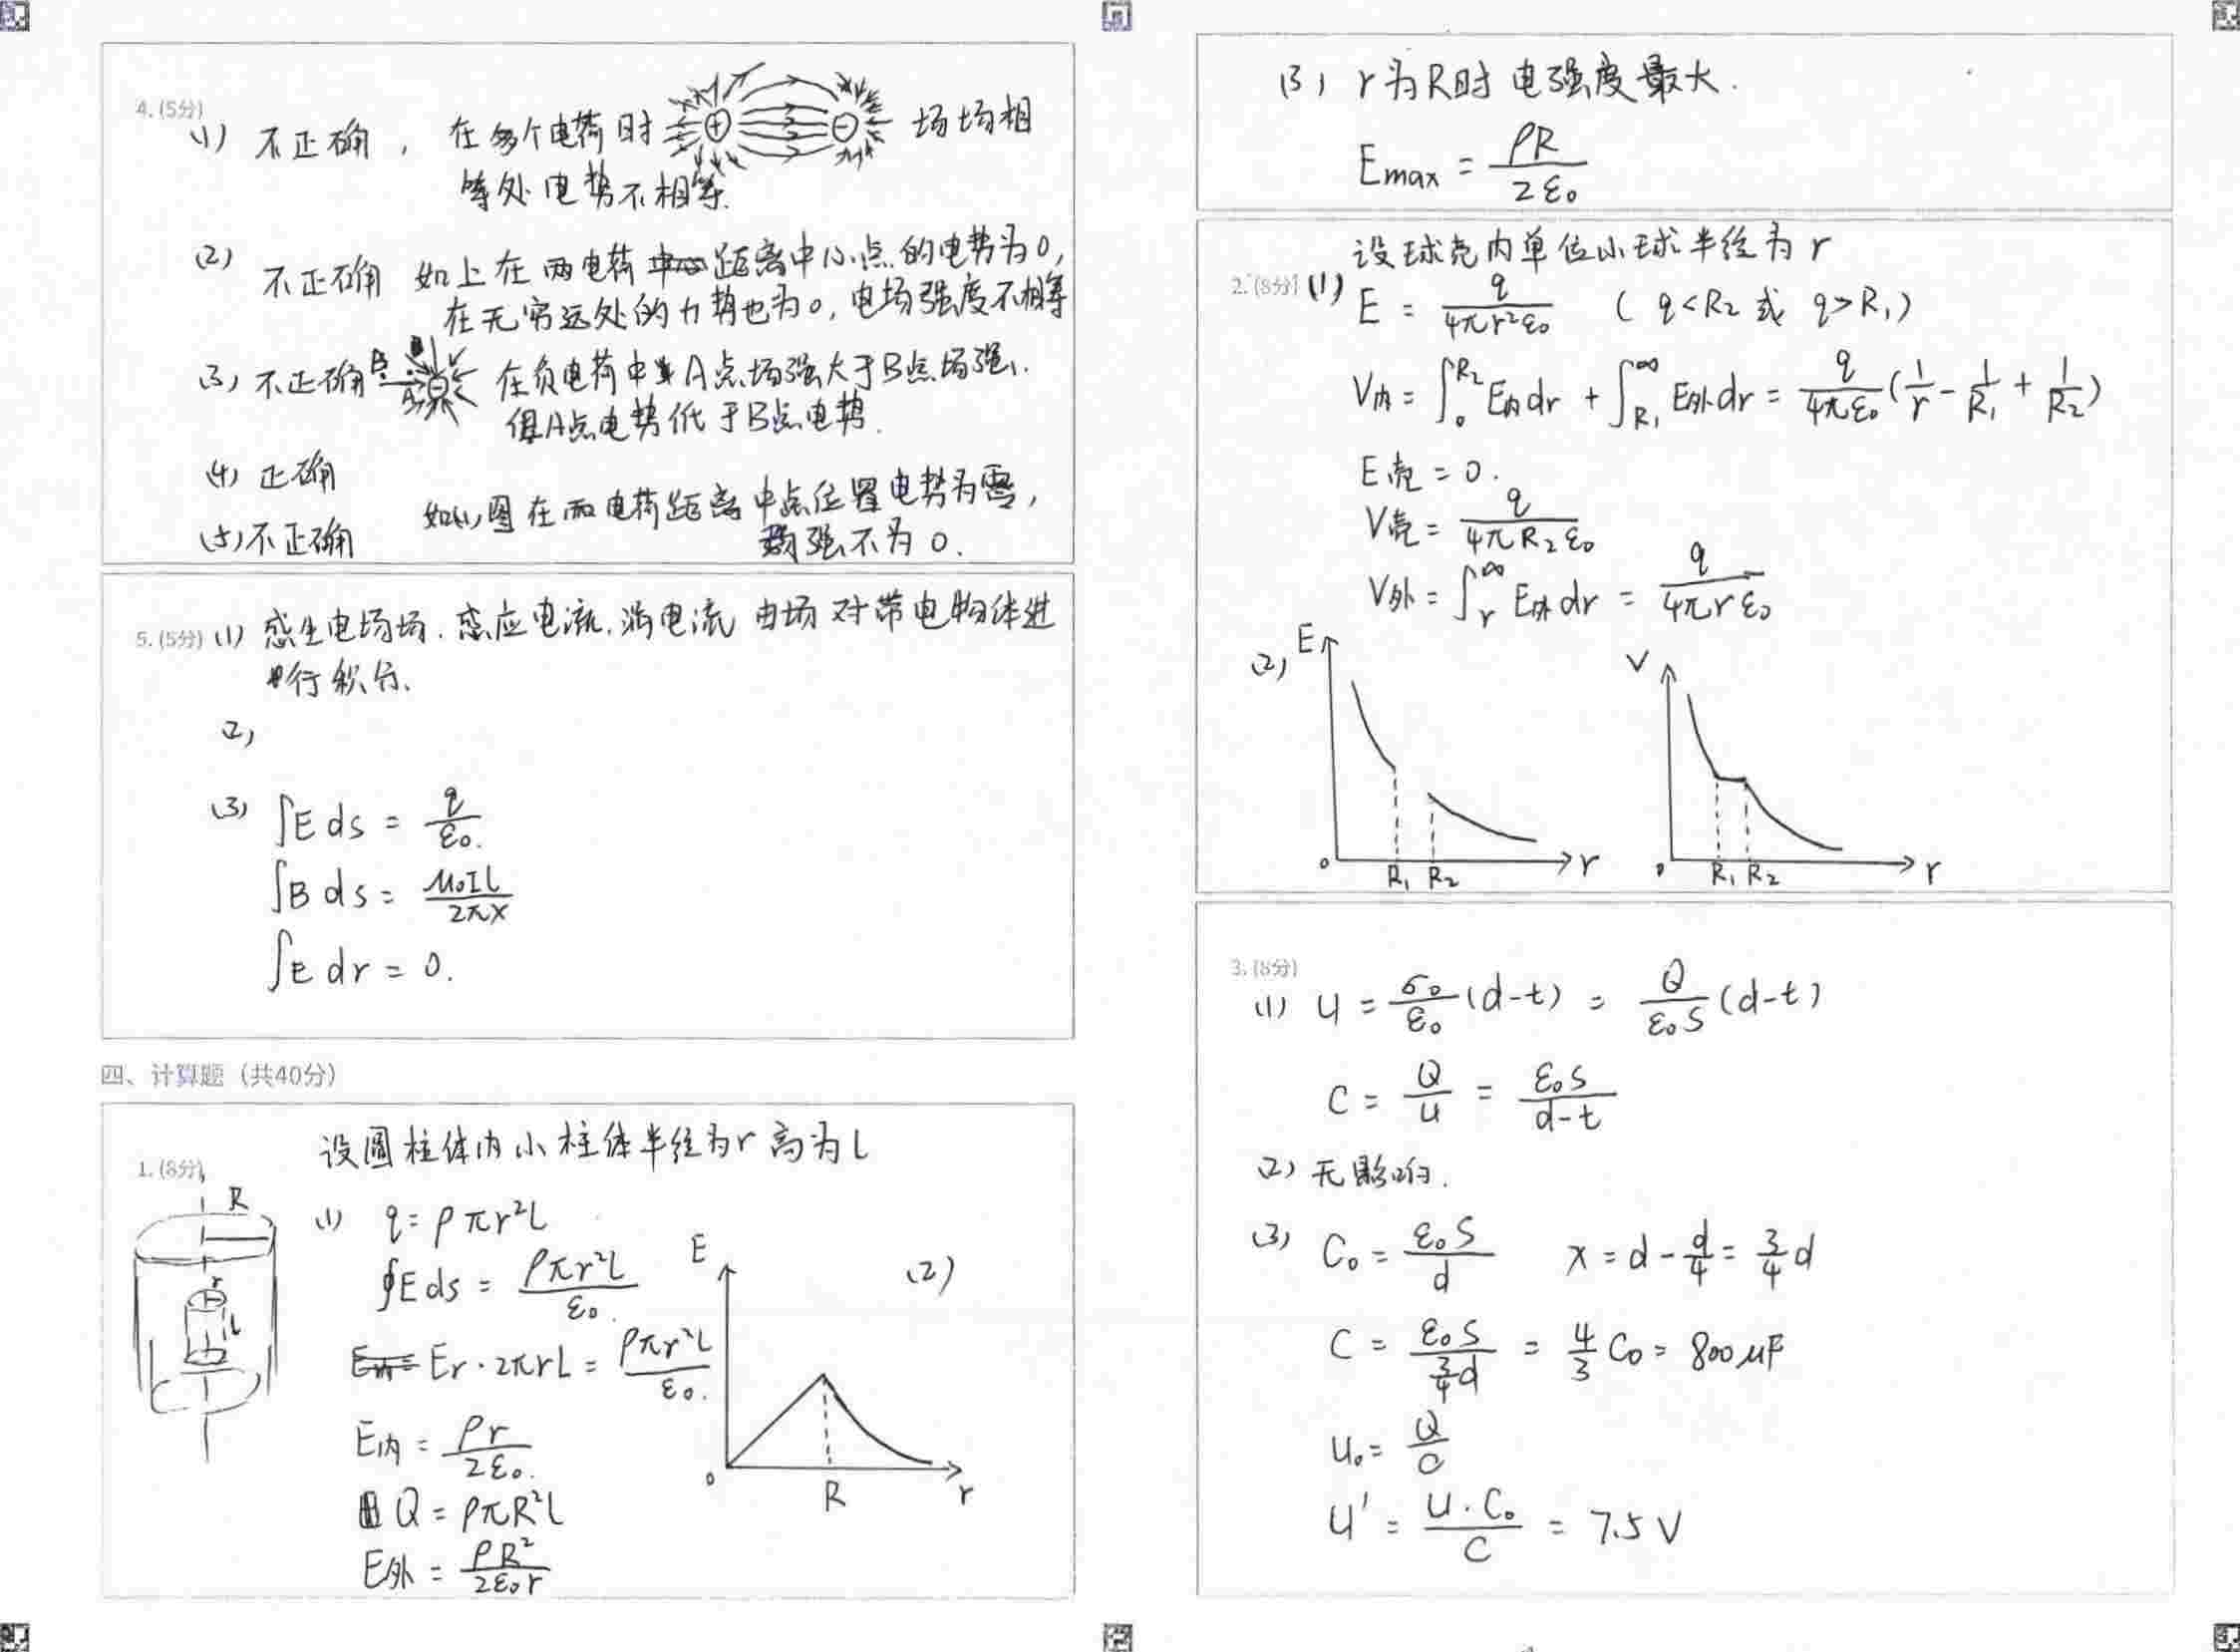 4. (5分)
(1) 不正确, 在多个电荷时 + - 场场相
等处电势不相等.
(2) 不正确 如上在两电荷距离中心点的电势为0,
在无穷远处的力势也为0, 电场强度不相等
(3) 不正确 B A 在负电荷中 A点场强大于B点场强.
但A点电势低于B点电势.
(4) 正确
(5) 不正确 如(1)图在两电荷距离中点位置电势为零,
场强不为0.
5. (5分) (1) 感生电场场. 感应电流. 涡电流 由场对带电物体进
行积分.
(2)
(3) ∫E ds = q/ε₀.
∫B ds = μ₀IL/2πx
∫E dr = 0.
四、计算题 (共40分)
1. (8分) 设圆柱体内小柱体半径为r 高为L
R
r
L
(1) q = ρπr²L
∮E ds = ρπr²L/ε₀.
Er · 2πrL = ρπr²L/ε₀.
E内 = ρr/2ε₀.
Q = ρπR²L
E外 = ρR²/2ε₀r
(2)
E
0 R r
(3) r为R时 电强度最大.
Emax = ρR/2ε₀
设球壳内单位小球半径为r
2. (8分) (1) E = q/4πr²ε₀ ( q<R₂ 或 q>R₁)
V内 = ∫₀^R₂ E内dr + ∫_R₁^∞ E外dr = q/4πε₀ (1/r - 1/R₁ + 1/R₂)
E壳 = 0.
V壳 = q/4πR₂ε₀
V外 = ∫_r^∞ E外dr = q/4πrε₀
(2) E
0 R₁ R₂ r
V
0 R₁ R₂ r
3. (8分)
(1) U = σ₀/ε₀ (d-t) = Q/ε₀S (d-t)
C = Q/U = ε₀S/d-t
(2) 无影响.
(3) C₀ = ε₀S/d x = d - d/4 = 3/4 d
C = ε₀S/(3/4 d) = 4/3 C₀ = 800μF
U₀ = Q/C
U' = U·C₀/C = 7.5V